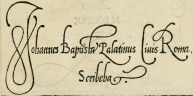 Iohannes Baptista Palatinus Ciuis Roma.
Scribebat.